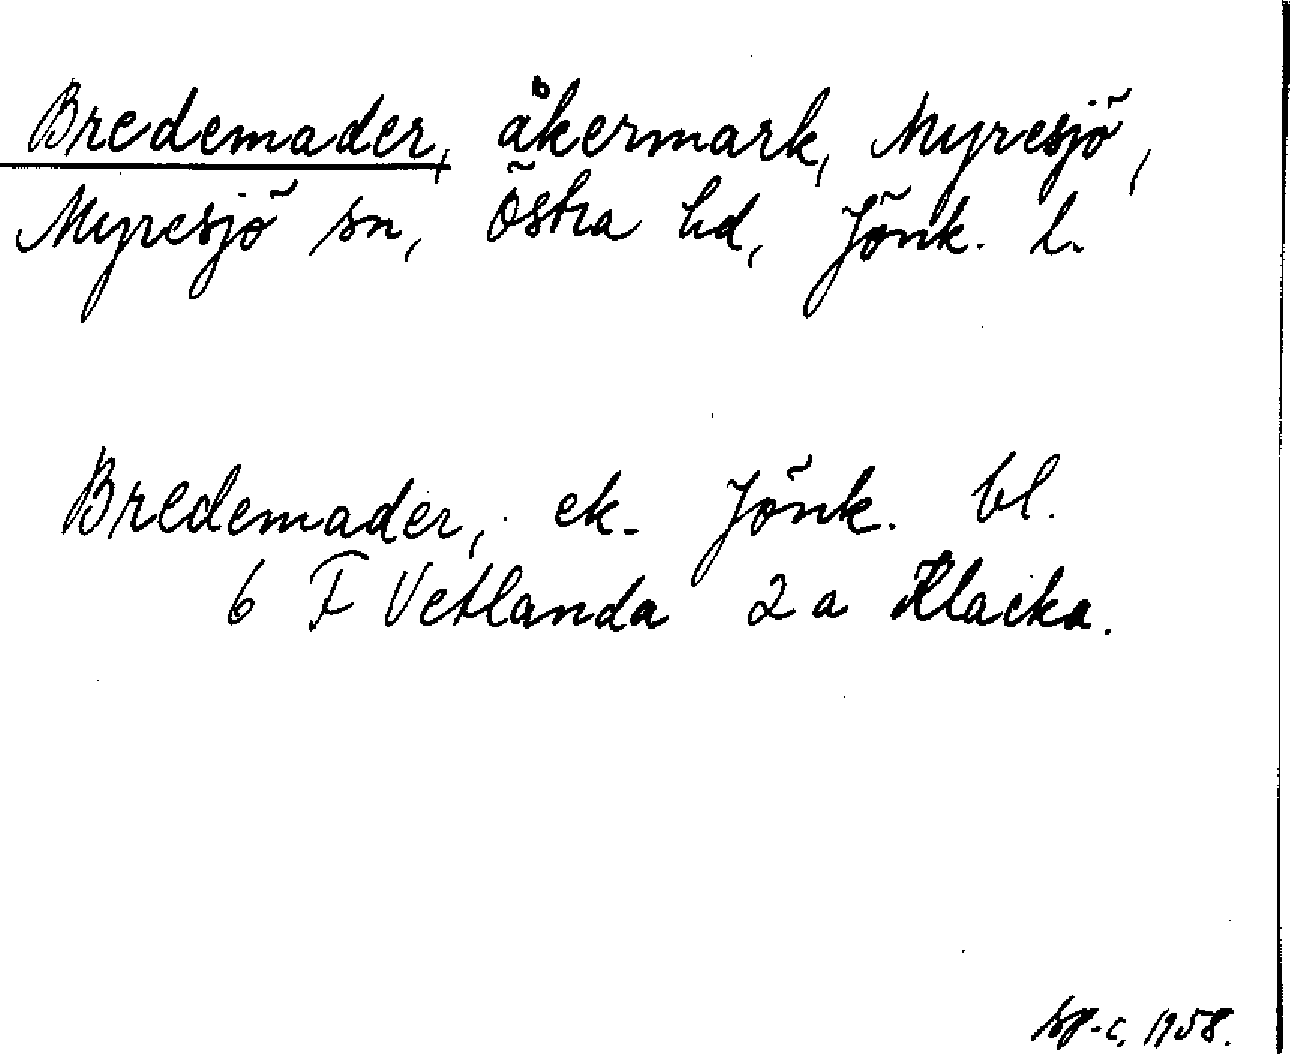 Bredemader, åkermark, Myresjö,
Myresjö sn, Östra hd, Jönk. l.
Bredemader, ek. Jönk. bl.
6 F Vetlanda 2 a Klacka.
1958.